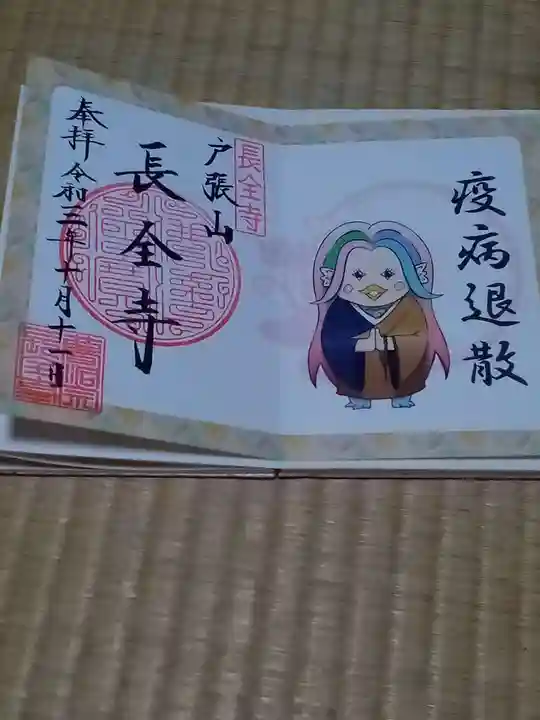 疫病退散
長全寺
戸張山
長全寺
奉拝 令和二年十月十一日